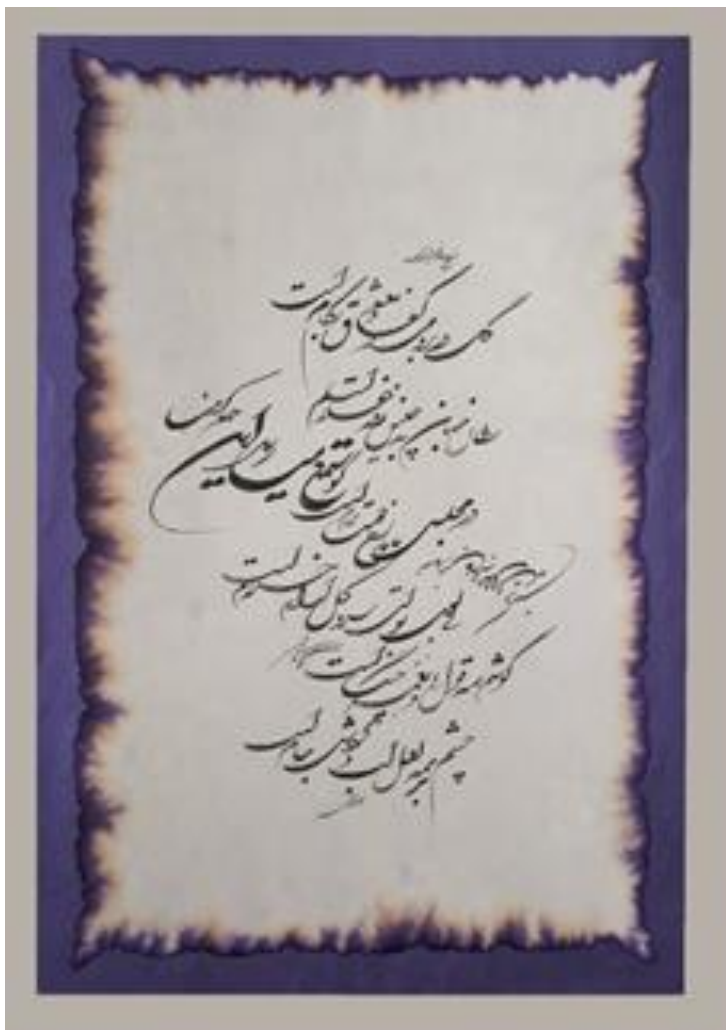 گل در بر و می در کف و معشوق بکام است
سلطان جهانم به چنین روز غلام است
گو شمع میارید در این جمع که امشب
در مجلس ما ماه رخ دوست تمام است
در مذهب ما باده حلال است ولیکن
بی روی تو ای سرو گل اندام حرام است
گوشم همه بر قول نی و نغمه چنگ است
چشمم همه بر لعل لب و گردش جام است